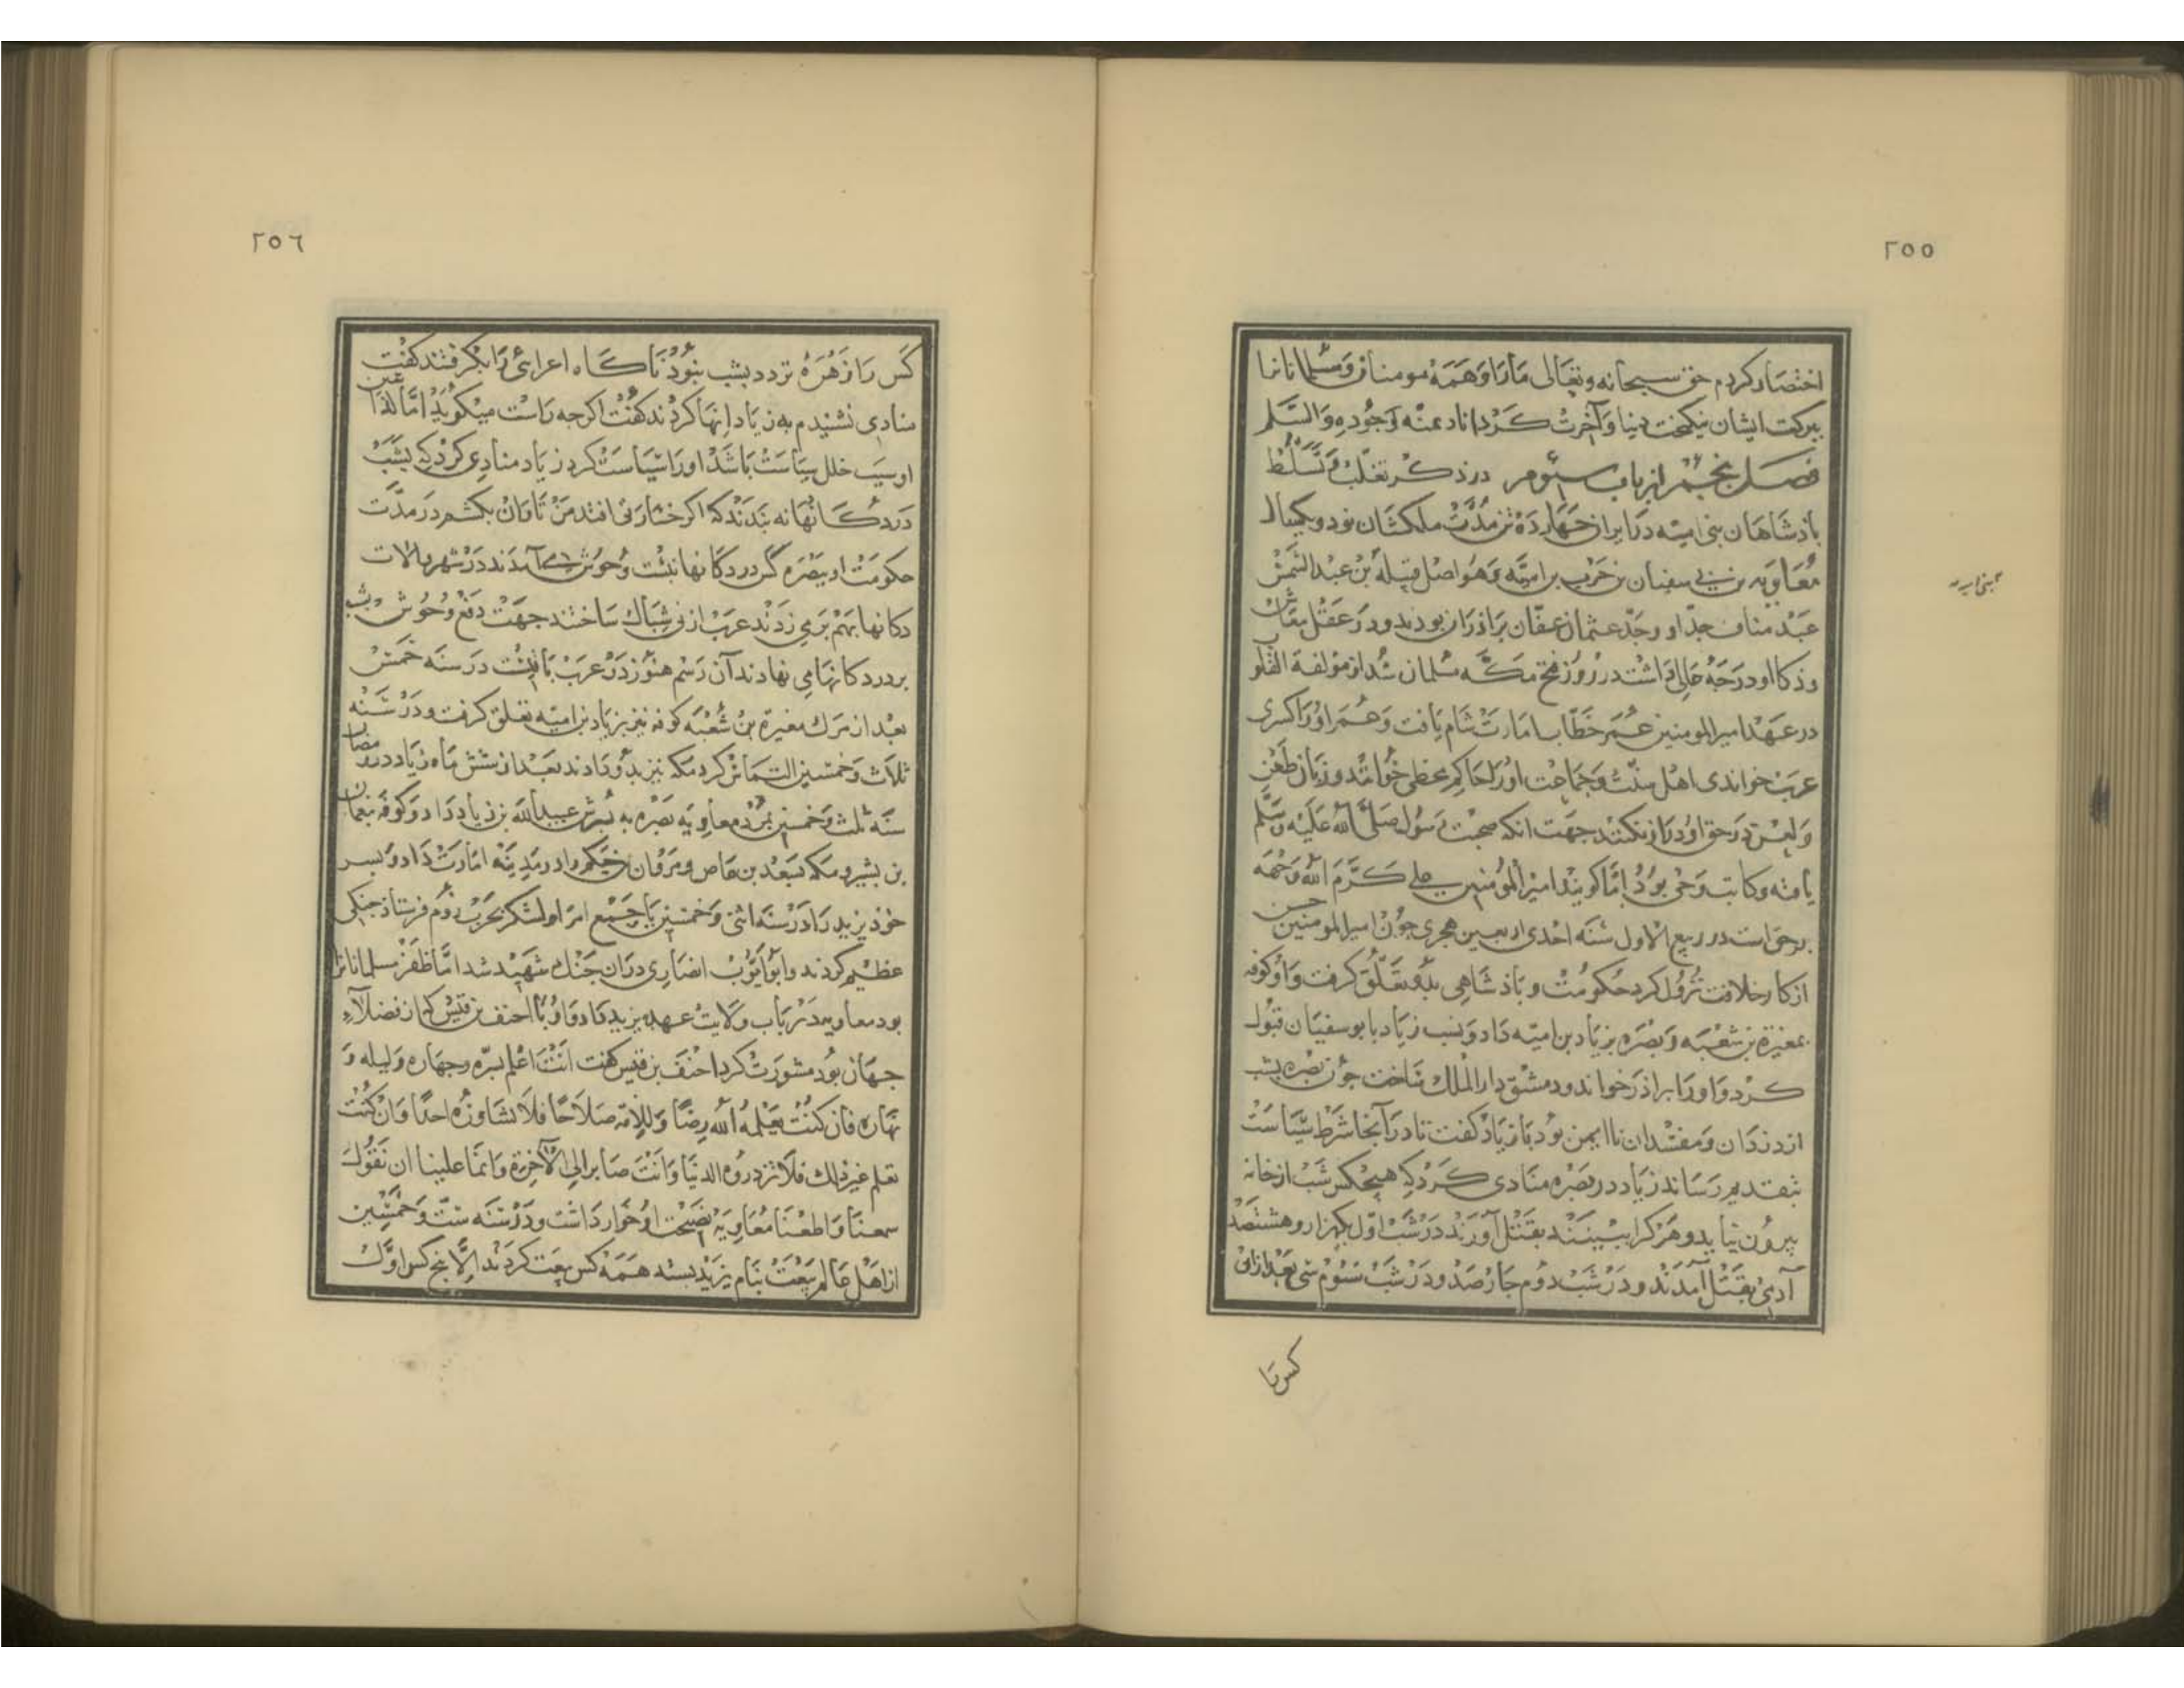 ٢٥٥
اختصار كردم حق سبحانه وتعالى مارا وهمه مومنان ومسلمانانرا
ببركت ايشان نيكبخت دنيا وآخرت كرداناد بمنه وجوده والسلم
فصل پنجم از باب سيوم در ذكر تغلب وتسلط
پادشاهان بنى اميه در ايران چهارده تن مدت ملكشان نود ويكسال
معاوية بن بى سفيان بن حرب بن اميه وهو اصل قبيله بن عبد الشمش
عبد مناف جد او وجد عثمان عفان برادران بودند ودر عقل معاش
وذكا او درجه عالى داشت در روز فتح مكه مسلمان شد از مؤلفة القلوب
در عهد امير المومنين عمر خطاب امارت شام يافت وعمر او را كسرى
عرب خواندى اهل سنت وجماعت او را حاكم مخطى خوانند وزبان طعن
ولعن در حق او دراز نكنند جهت انكه صحبت رسول صلى الله عليه وسلم
يافته وكاتب وحى بود اما كويند امير المؤمنين على كرم الله وجهه
برحق است در ربيع الاول سنه احدى اربعين هجرى چون امير المومنين حسن
از كار خلافت نزول كرد حكومت وپادشاهى بدو تعلق كرفت واو كوفه
بمغيرة بن شعبه وبصره بزياد بن اميه داد ونسب زياد با بوسفيان قبول
كرد واو را برادر خواند ودمشق دار الملك ساخت چون بصره بشب
از دزدان ومفسدان نا ايمن بود با زياد كفت تا در آنجا شرط سياست
بتقديم رساند زياد در بصره منادى كرد كه هيچكس شب از خانه
بيرون نيايد وهر كرا ببينند بقتل آورند در شب اول يكهزار وهشتصد
آدمى بقتل آمدند ودر شب دوم چارصد ودر شب سيوم سى بعد از ان
كس را
بنى اميه
٢٥٦
كس را زهره تردد بشب نبود ناكاه اعرابئى را بكرفتند كفت
منادى نشنيدم به زياد انها كردند كفت اكرچه راست ميكويد اما
او سبب خلل سياست باشد او را سياست كرد زياد منادى كرد كه بشب
در دكانها نه بندند كه اكر خسارتى افتد من تاوان بكشم در مدت
حكومت او ببصره كس در دكانها نبست وحوش مى آمدند در شهر بالات
دكانها بهم بر مى زدند عرب از نى شباك ساختند جهت دفع وحوش وبشب
بر در دكانها مى نهادند آن رسم هنوز در عرب باقيست در سنه خمس
بعد از مرك مغيرة بن شعبه كوفه نيز بزياد بن اميه تعلق كرفت ودر سنه
ثلاث وخمسين التماس كرد مكه نيز بدو دادند بعد از شش ماه زياد در رمضان
سنه ثلث وخمسين بمرد معاويه بصره به پسرش عبيد الله بن زياد داد وكوفه بنعمان
بن بشير ومكه بسعد بن عاص ومروان حكم را در مدينه امارت داد وپسر
خوذ يزيد را در سنه اثنى وخمسين با جميع امرا ولشكر بحرب روم فرستاد جنكى
عظيم كردند وابو ايوب انصارى دران جنك شهيد شد اما ظفر مسلمانانرا
بود معاويه در باب ولايت عهد يزيد داد واو با احنف بن قيس كه از فضلاء
جهان بود مشورت كرد احنف بن قيس كفت انت اعلم بسره وجهاره وليله و
نهاره فان كنت تعلمه الله رضا وللامة صلاحا فلا تشاوره احدا وان كنت
تعلم غير ذلك فلا تزدروه الدنيا وانت صابر الى الآخرة وانما علينا ان نقول
سمعنا واطعنا معاويه نصيحت او خوار داشت ودر سنه ست وخمسين
از اهل عالم بيعت بنام يزيد بستد همه كس بيعت كردند الا پنج كس اول